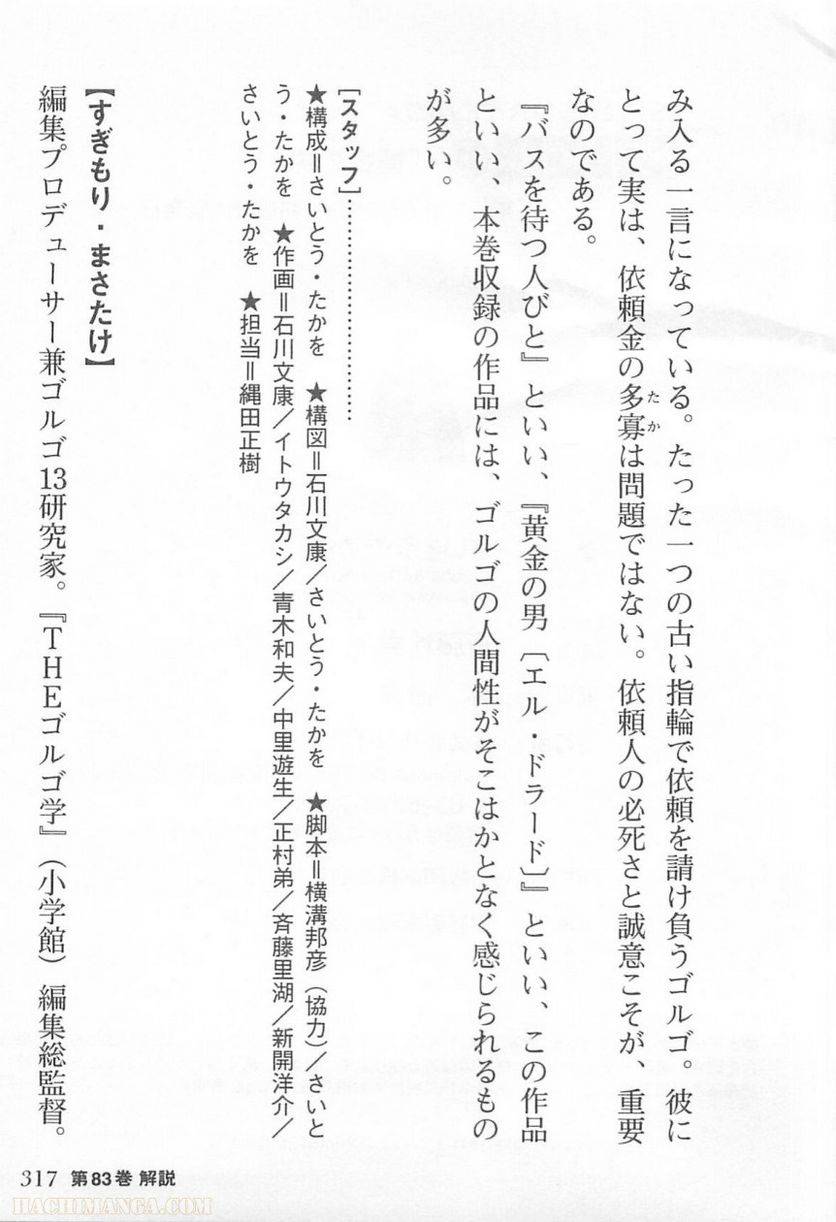 み入る一言になっている。たった一つの古い指輪で依頼を請け負うゴルゴ。彼に
とって実は、依頼金の多寡は問題ではない。依頼人の必死さと誠意こそが、重要
たか
なのである。
『バスを待つ人びと』といい、『黄金の男〔エル・ドラード〕』といい、この作品
といい、本巻収録の作品には、ゴルゴの人間性がそこはかとなく感じられるもの
が多い。
［スタッフ］……………………………
★構成＝さいとう・たかを ★構図＝石川文康／さいとう・たかを ★脚本＝横溝邦彦（協力）／さいと
う・たかを ★作画＝石川文康／イトウタカシ／青木和夫／中里遊生／正村弟／斉藤里湖／新開洋介／
さいとう・たかを ★担当＝縄田正樹
【すぎもり・まさたけ】
編集プロデューサー兼ゴルゴ13研究家。『THEゴルゴ学』（小学館）編集総監督。
317 第83巻 解説
HACHIMANGA.COM